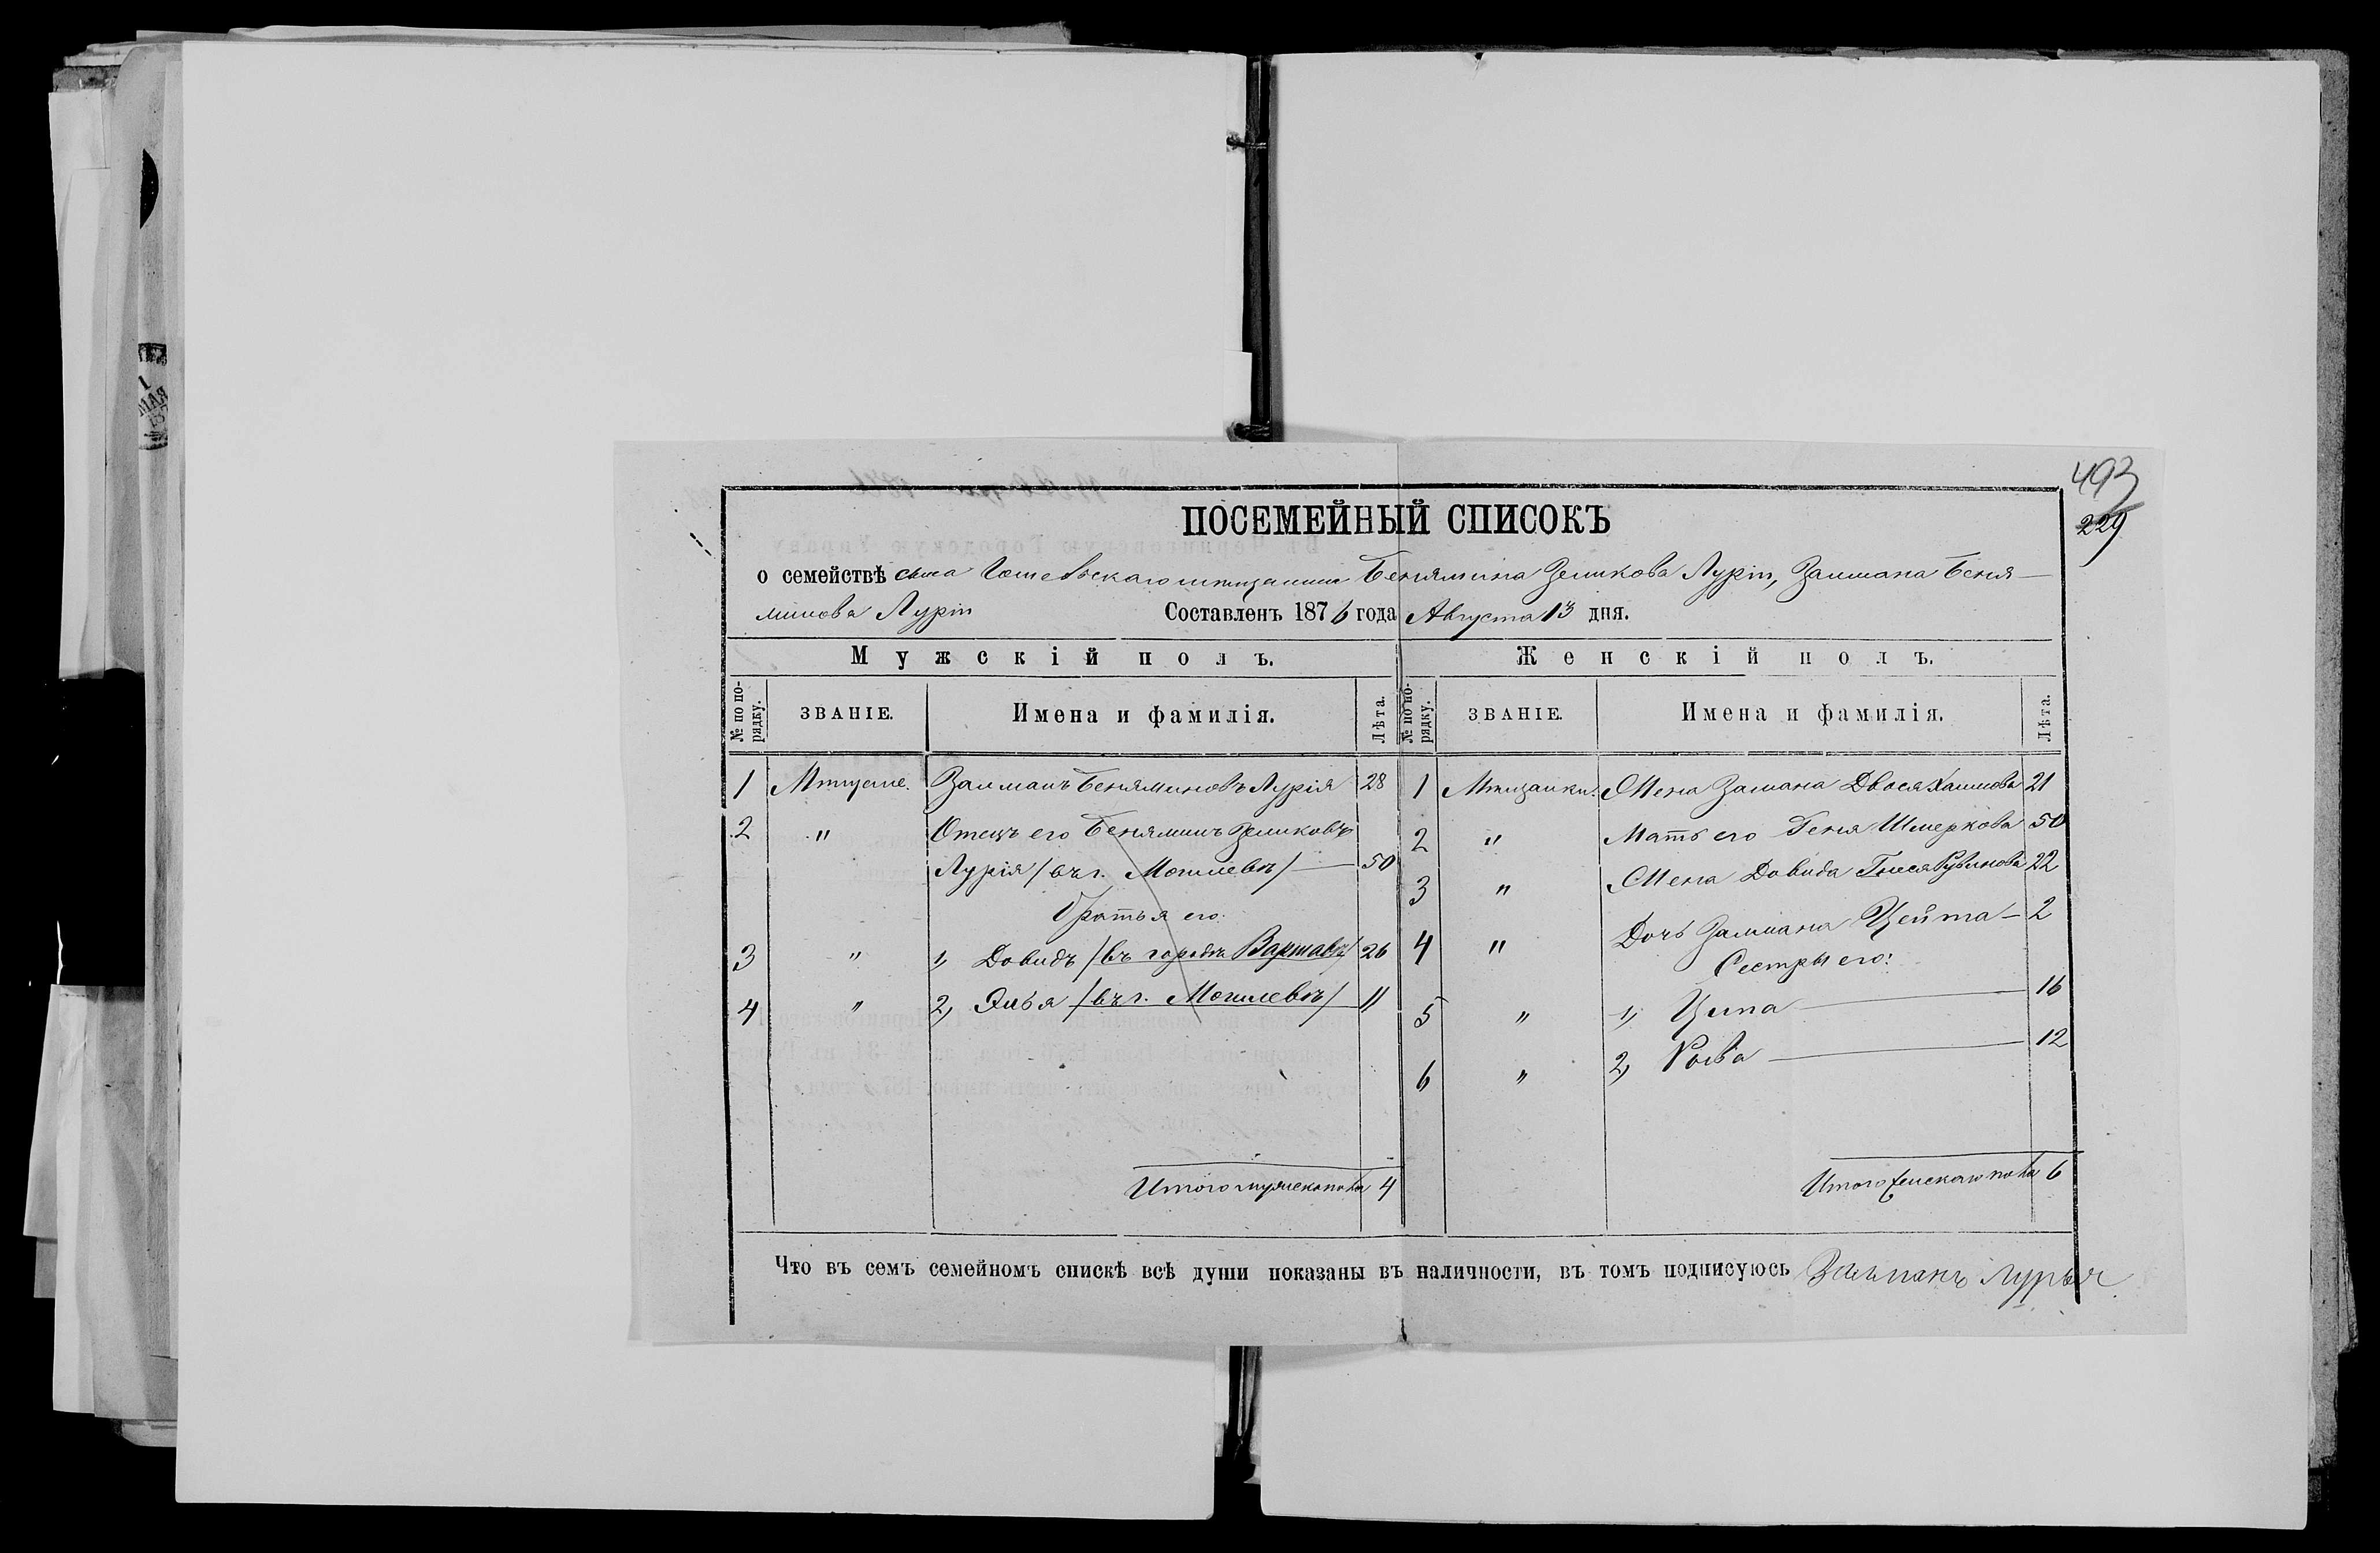 493
229
ПОСЕМЕЙНЫЙ СПИСОКЪ
о семействѣ сына мѣщанина Бенямина Зеликова Луріи, Залмана Беня-
минова Луріи Составленъ 1876 года Августа 13 дня.
Мужскій полъ. Женскій полъ.
№ по порядку. ЗВАНІЕ. Имена и фамилія. Лѣта. № по порядку. ЗВАНІЕ. Имена и фамилія. Лѣта.
1 Мѣщане. Залманъ Беняминовъ Лурія 28 1 Мѣщанки. Жена Залмана Двося Хаимова 21
2 " Отецъ его Бенямин Зеликовъ
Лурія /въ г. Могилевѣ/ — 50
2 " Мать его Геня Шмеркова 50
3 " Жена Довида Гнеся Рувинова 22
Братья его:
3 " 1, Довидъ /въ городѣ Варшавѣ/ 26
4 " Дочь Залмана Цейта — 2
Сестры его:
4 " 2, Элья /въ г. Могилевѣ/ — 11
5 " 1, Ципа — 16
6 " 2, — 12
Итого мужеск пола 4 Итого женскаго пола 6
Что въ семъ семейномъ спискѣ всѣ души показаны въ наличности, въ томъ подписуюсь Залманъ Лурья